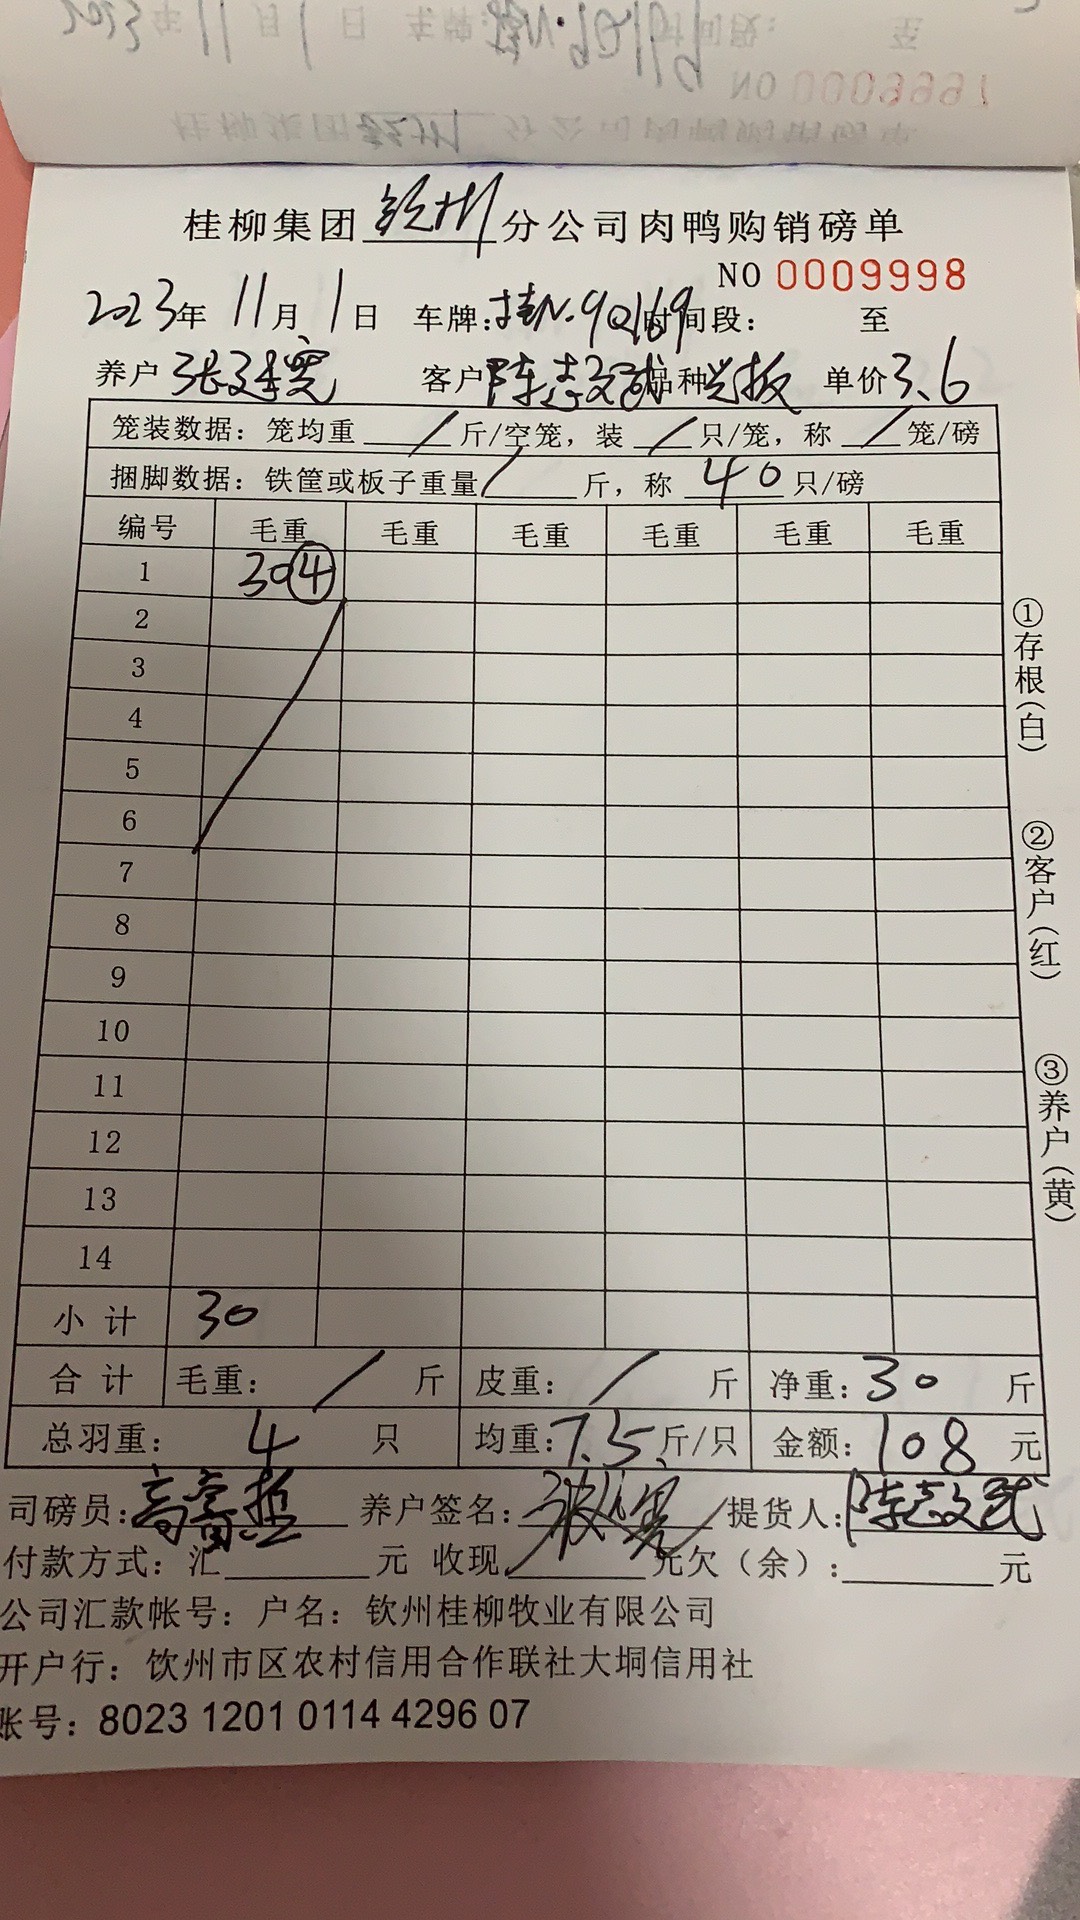 桂柳集团钦州分公司肉鸭购销磅单
NO 0009998
2023年 11月 1日 车牌:桂N·9Q169 时间段: 至
养户 客户 陈志文 品种 单价 3.6
笼装数据: 笼均重 / 斤/空笼, 装 / 只/笼, 称 / 笼/磅
捆脚数据: 铁筐或板子重量 / 斤, 称 40 只/磅
编号 毛重 毛重 毛重 毛重 毛重 毛重
1 30④
2
3
4
5
6
7
8
9
10
11
12
13
14
小计 30
合计 毛重: / 斤 皮重: / 斤 净重: 30 斤
总羽重: 4 只 均重: 7.5 斤/只 金额: 108 元
司磅员: 养户签名: 提货人: 陈志文
付款方式: 汇 元 收现 元 欠(余): 元
公司汇款帐号: 户名: 钦州桂柳牧业有限公司
开户行: 钦州市区农村信用合作联社大垌信用社
账号: 8023 1201 0114 4296 07
①存根(白)
②客户(红)
③养户(黄)